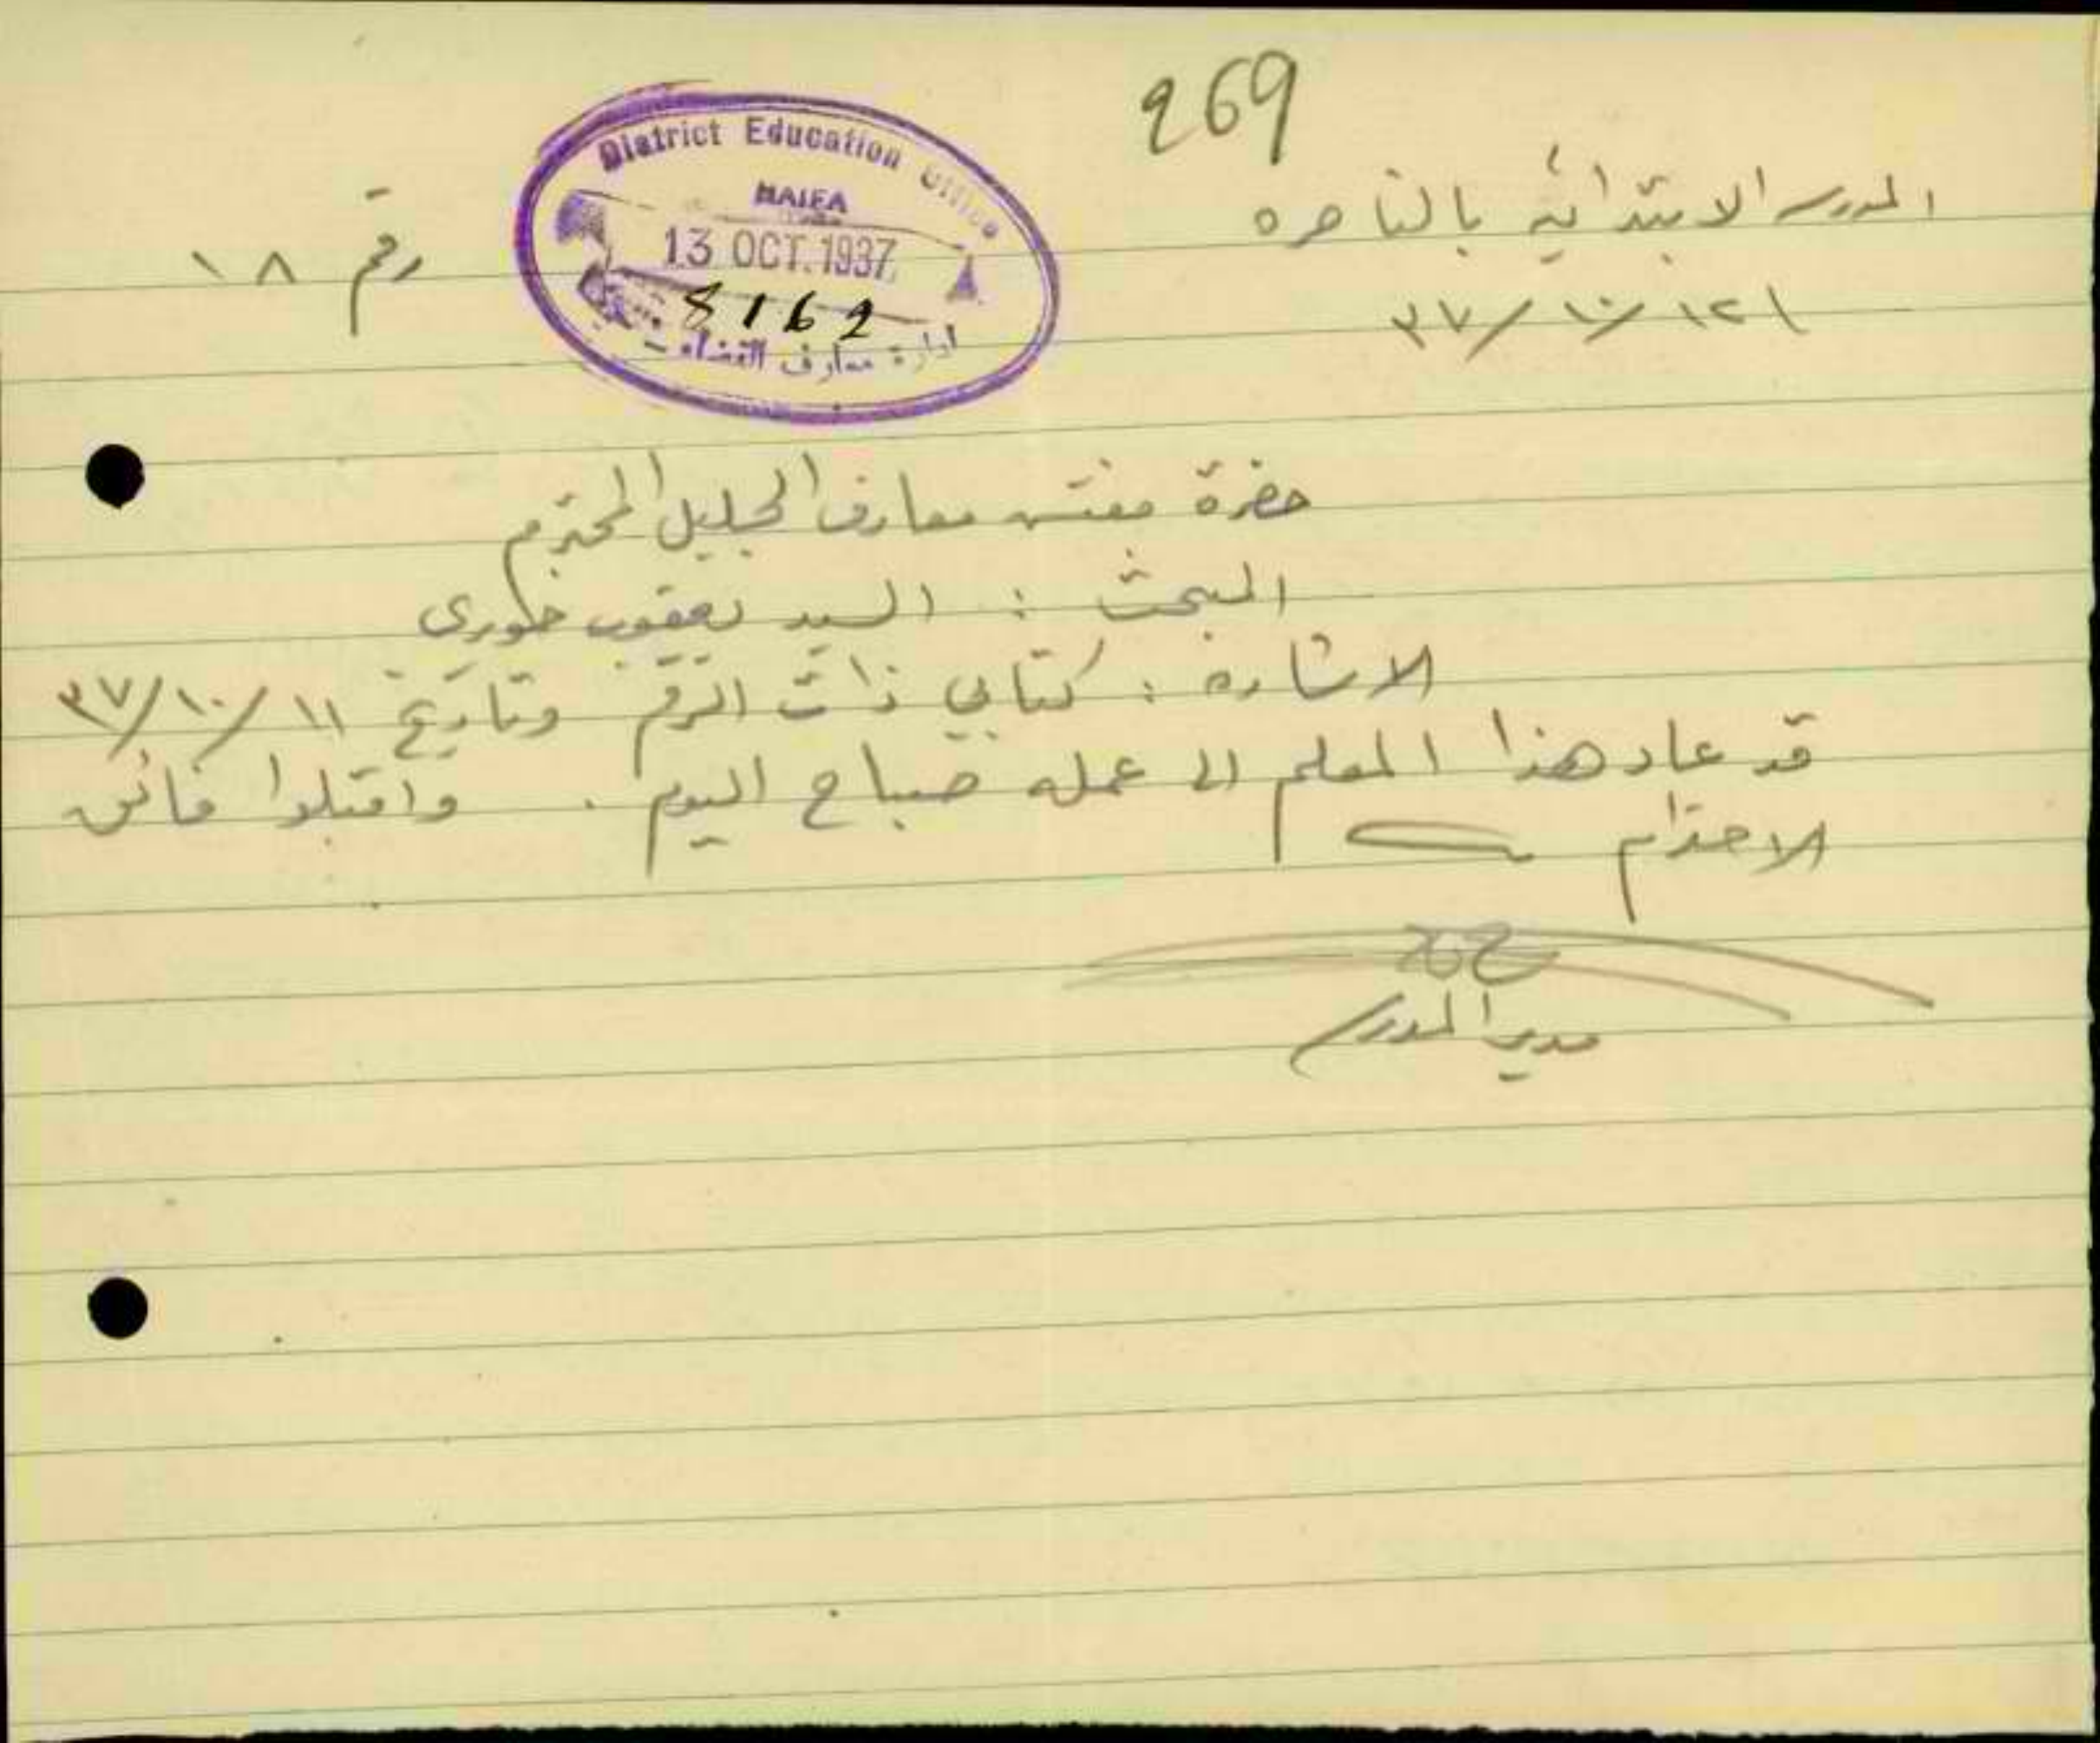 269
المدرسة الابتدائية بالناصره
١٢/١٠/٣٧
رقم ١٨
District Education Office
HAIFA
13 OCT. 1937
8162
ادارة معارف القضاء -
حضرة مفتش معارف الجليل المحترم
المبحث : السيد يعقوب خوري
الاشاره : كتابي ذات الرقم وتاريخ ١١/١٠/٣٧
قد عاد هذا المعلم الى عمله صباح اليوم . واقبلوا فائق
الاحترام
مدير المدرسة